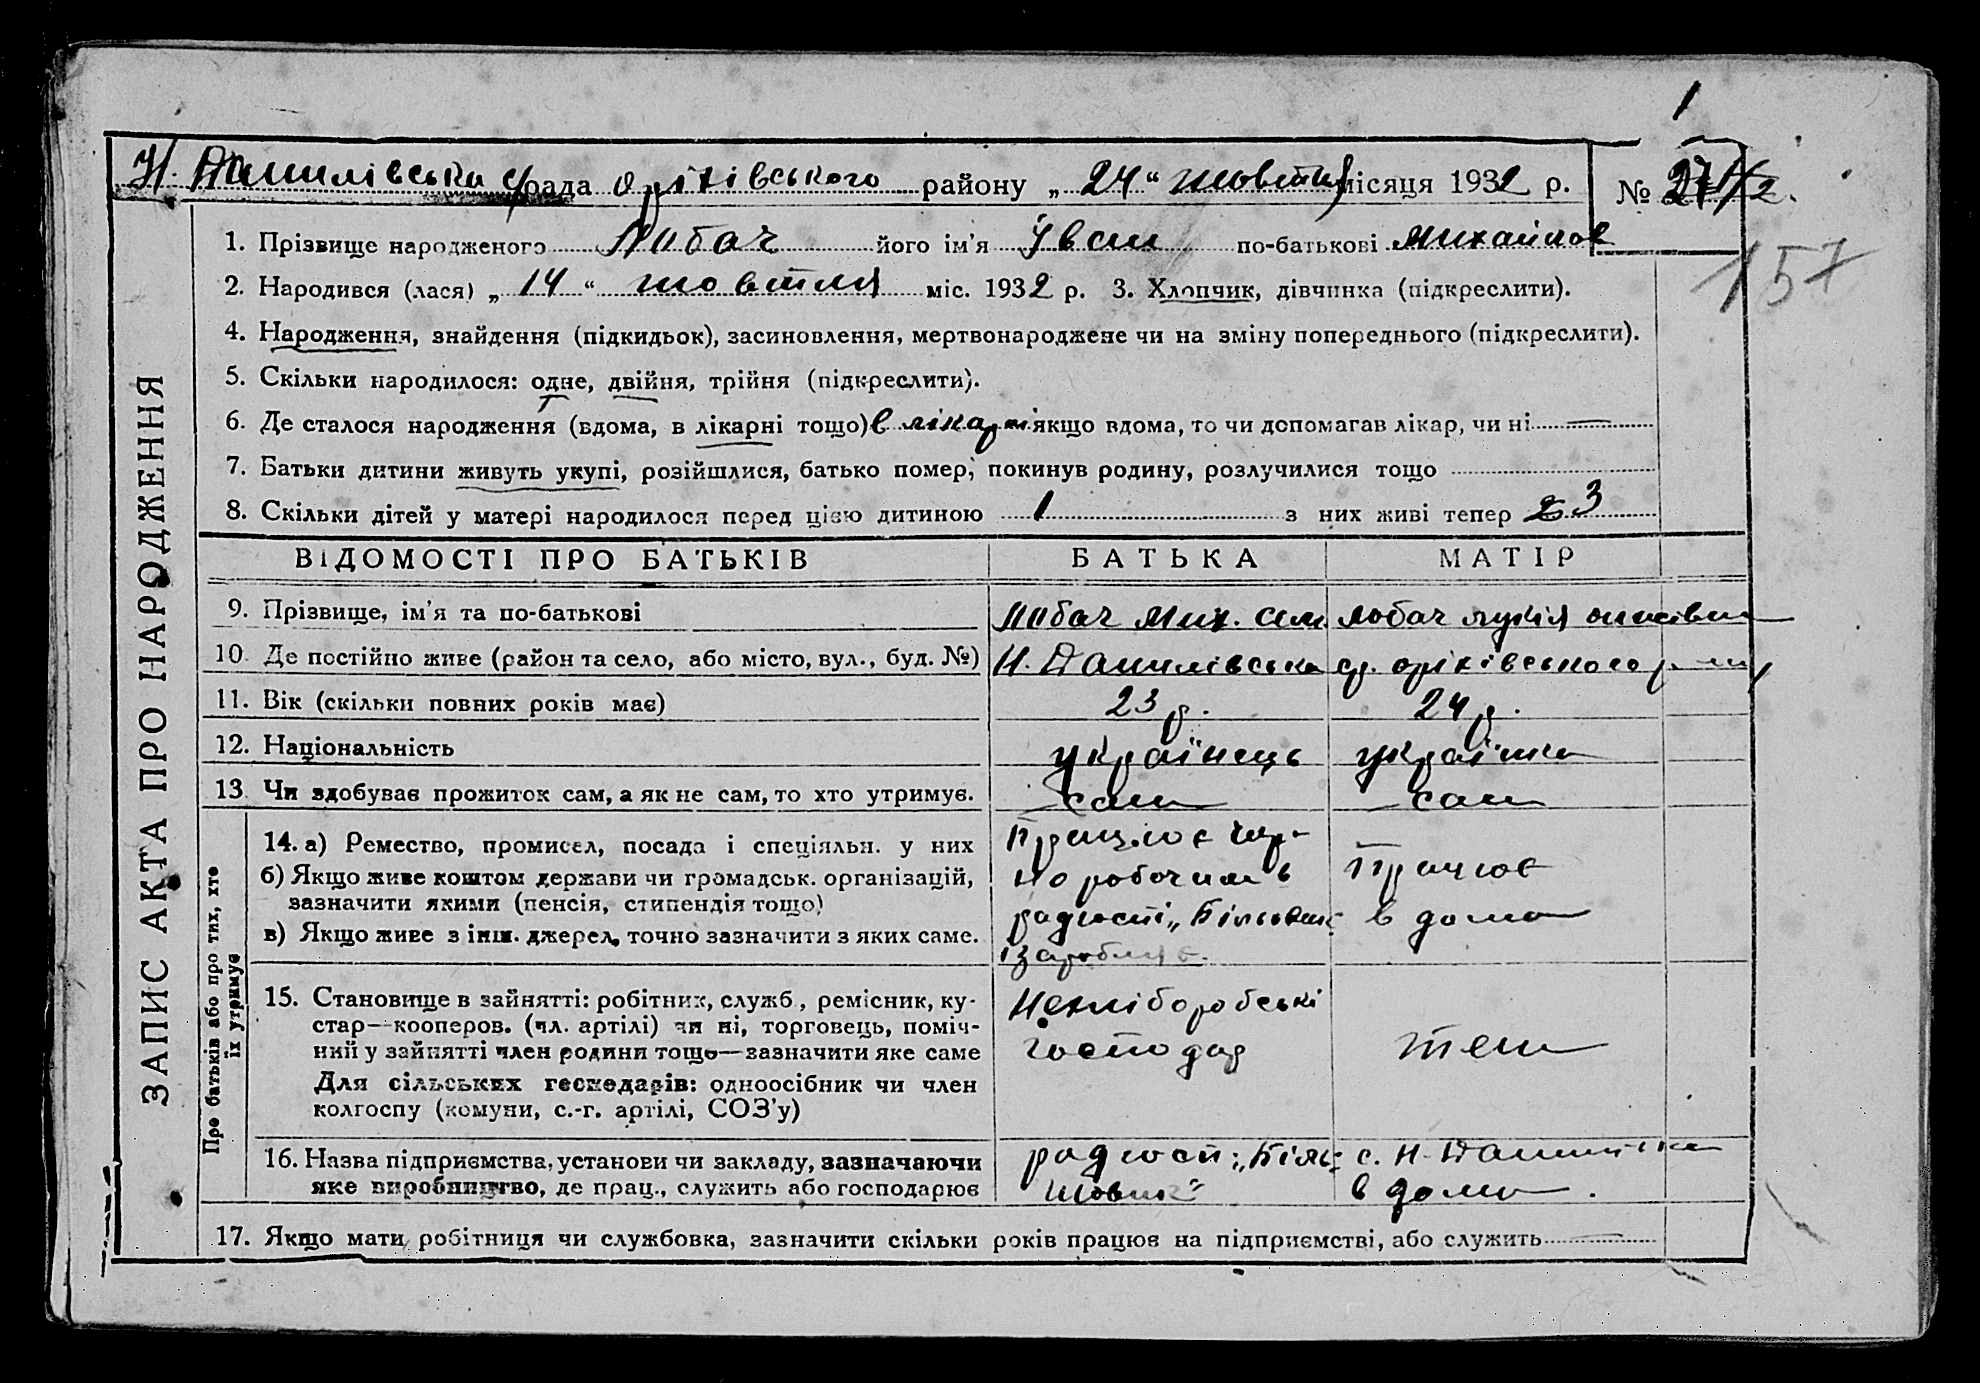 1
Н. Данилівська с/рада оріхівського району „24“ жовтня місяця 1932 р.
№ 2
157
ЗАПИС АКТА ПРО НАРОДЖЕННЯ
1. Прізвище народженого Лобач його ім’я Іван по-батькові Михайлов
2. Народився (лася) „14“ жовтня міс. 1932 р. 3. Хлопчик, дівчинка (підкреслити).
4. Народження, знайдення (підкидьок), засиновлення, мертвонароджене чи на зміну попереднього (підкреслити).
5. Скільки народилося: одне, двійня, трійня (підкреслити).
6. Де сталося народження (вдома, в лікарні тощо) в лікарні якщо вдома, то чи допомагав лікар, чи ні —
7. Батьки дитини живуть укупі, розійшлися, батько помер, покинув родину, розлучилися тощо
8. Скільки дітей у матері народилося перед цією дитиною 1 з них живі тепер 2 3
ВІДОМОСТІ ПРО БАТЬКІВ БАТЬКА МАТІР
9. Прізвище, ім’я та по-батькові Лобач Мих. Сем Лобач
10. Де постійно живе (район та село, або місто, вул., буд. №) Н. Данилівська ср. оріхівського
11. Вік (скільки повних років має) 23 р. 24 р.
12. Національність українець українка
13. Чи здобуває прожиток сам, а як не сам, то хто утримує. сам сам
Про батьків або про тих, хто
їх утримує
14. а) Ремество, промисел, посада і спеціяльн. у них Працює чор-
б) Якщо живе коштом держави чи громадськ. організацій, но робочим в Працює
зазначити якими (пенсія, стипендія тощо)
в) Якщо живе з інш. джерел, точно зазначити з яких саме. радгоспі „ в дома
заробляє.
15. Становище в зайнятті: робітник, служб., ремісник, ку-
стар—кооперов. (чл. артілі) чи ні, торговець, поміч-
ний у зайнятті член родини тощо—зазначити яке саме господар теж
Для сільських господарів: одноосібник чи член
колгоспу (комуни, с.-г. артілі, СОЗ’у)
16. Назва підприємства, установи чи закладу, зазначаючи радгосп „Біль- с. Н-Данилівка
яке виробництво, де прац., служить або господарює шовик“ в дома.
17. Якщо мати робітниця чи службовка, зазначити скільки років працює на підприємстві, або служить —